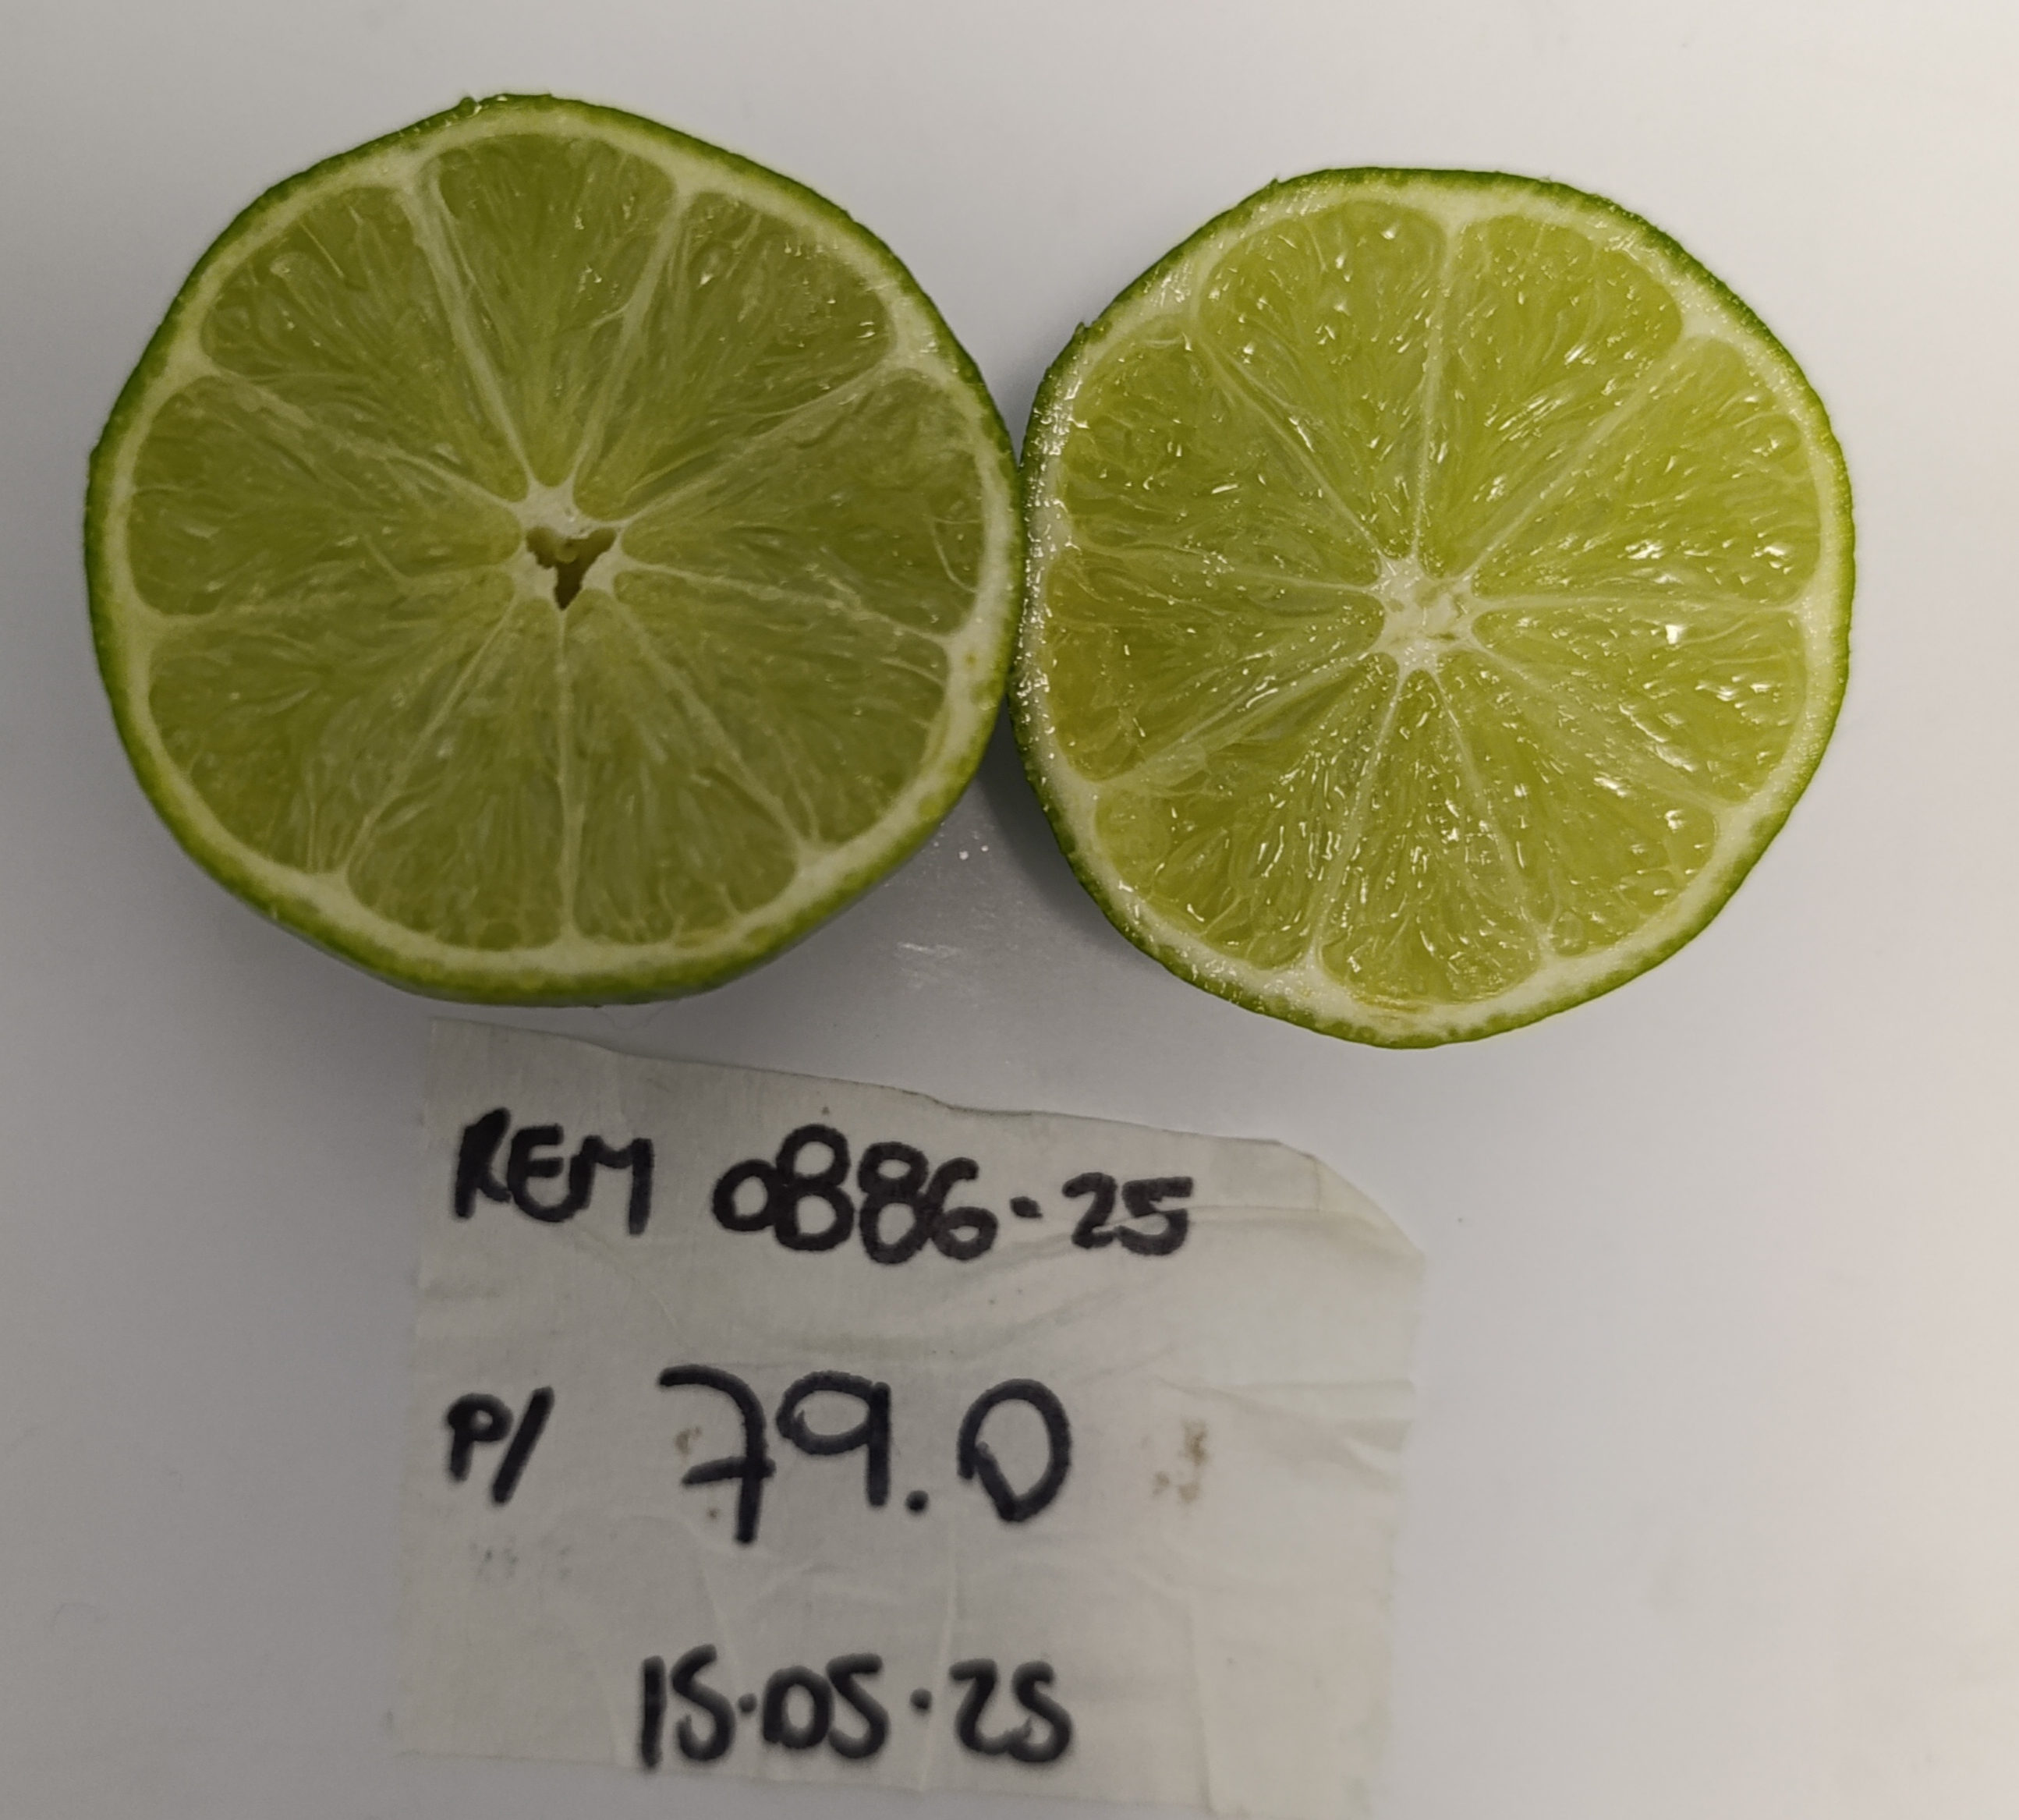 REM 0886-25
P/ 79.0
15.05.25